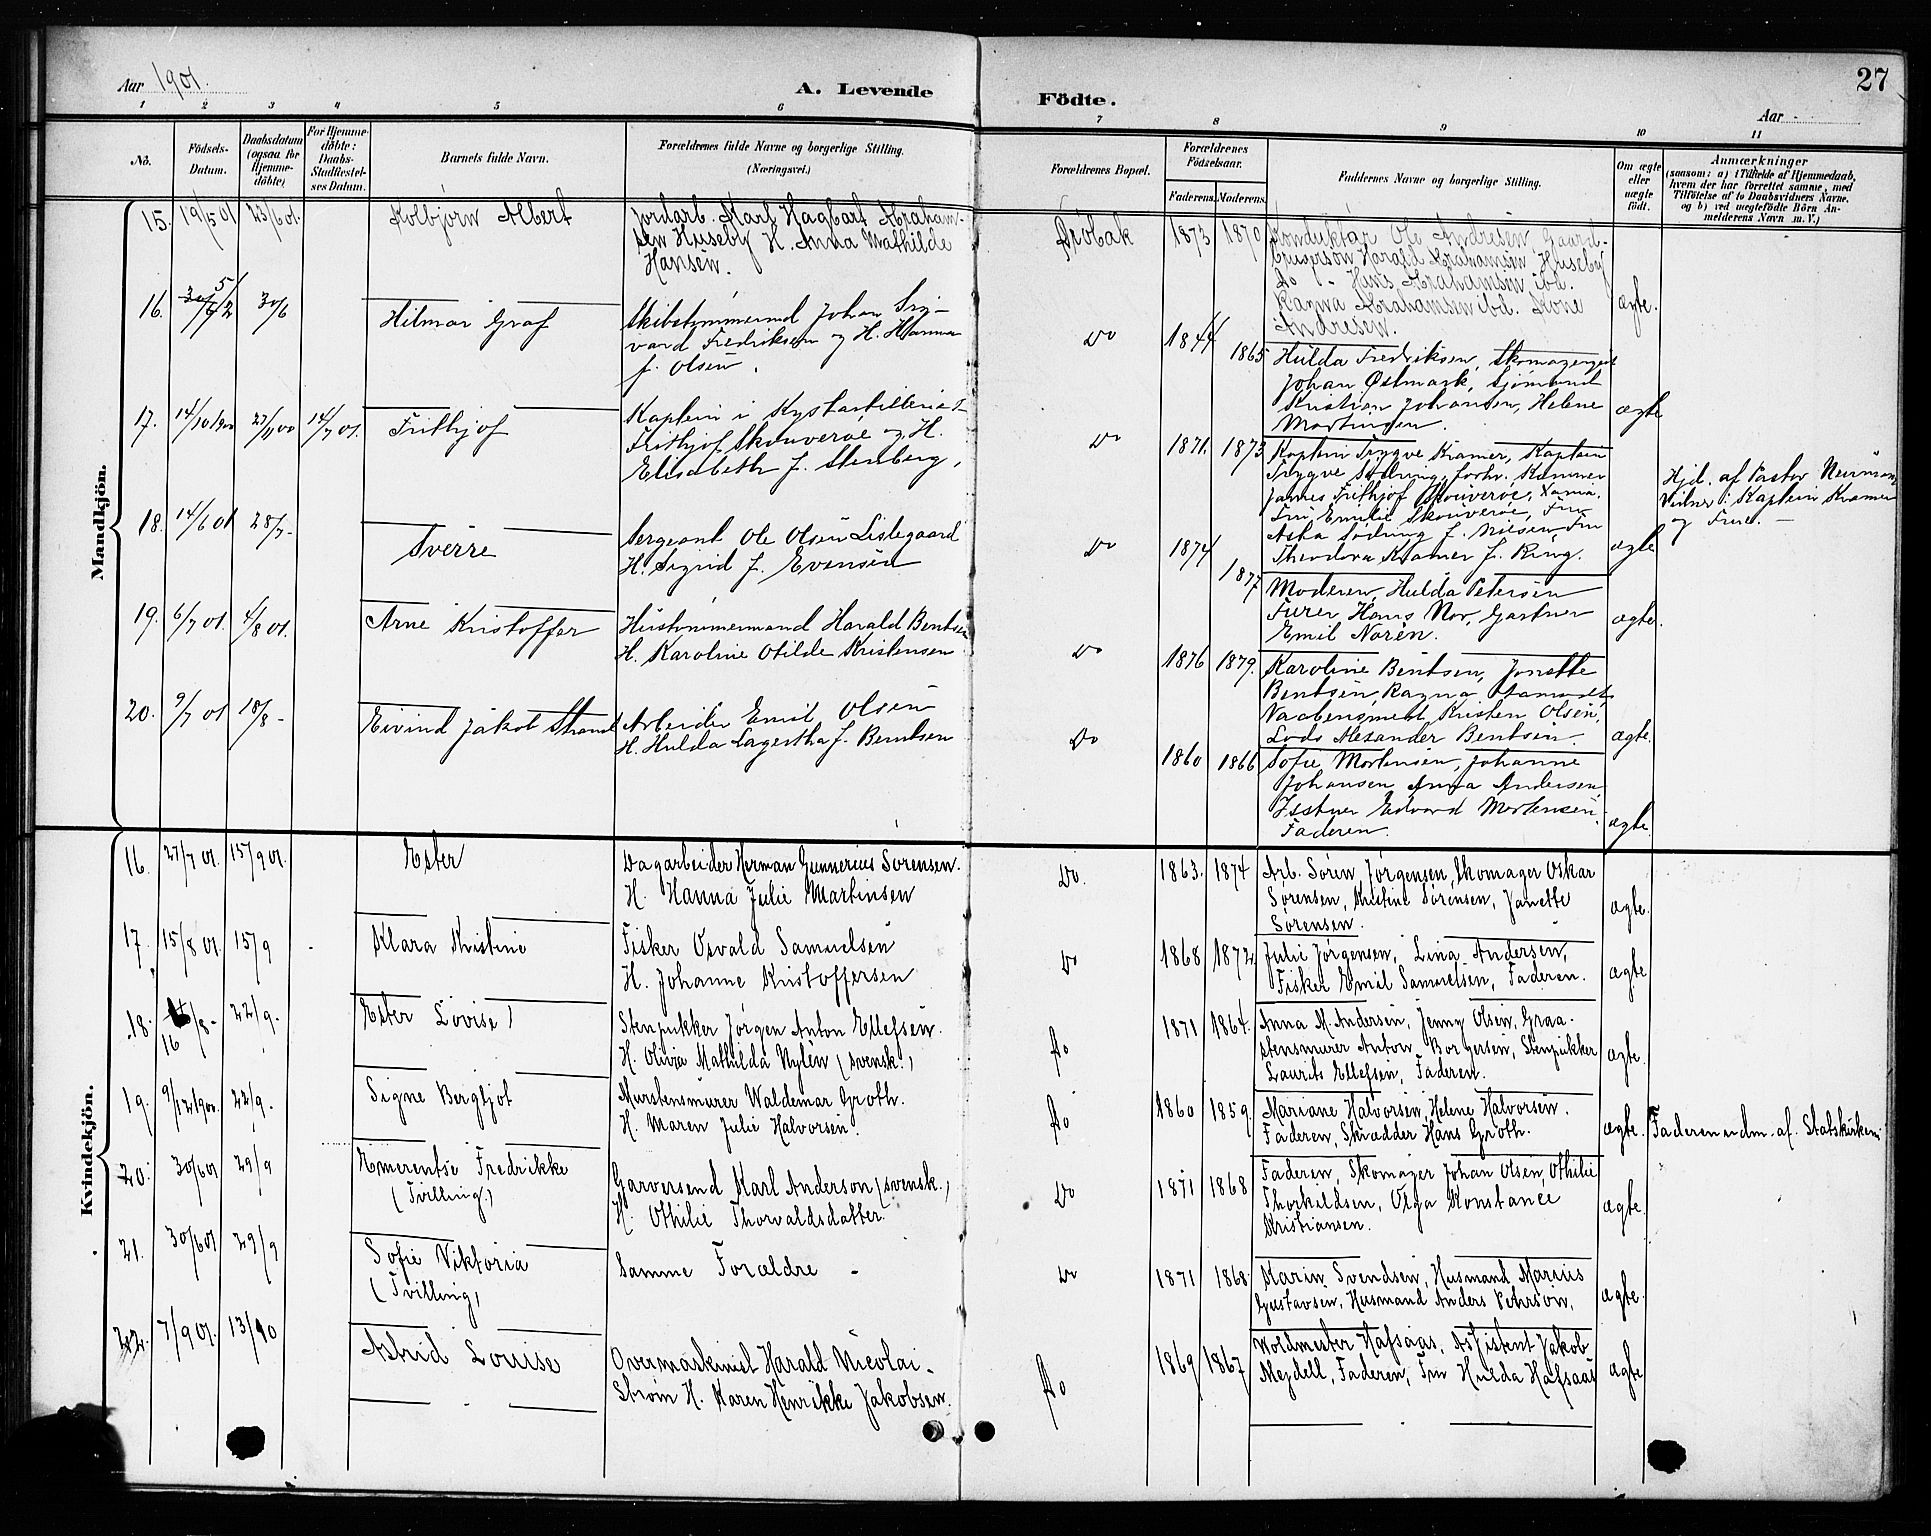 27
Aar 1901.
A. Levende Födte.
Aar
1 2 3 4 5 6 7 8 9 10 11
No.
Födsels-Datum.
Daabsdatum (ogsaa for Hjemme-döbte)
For Hjemme-döbte: Daabs-Stadfæstel-ses Datum.
Barnets fulde Navn.
Forældrenes fulde Navne og borgerlige Stilling.
(Næringsvei.)
Forældrenes Bopæl.
Forældrenes Födselsaar.
Faderens. Moderens.
Faddernes Navne og borgerlige Stilling.
Om ægte eller uægte födt.
Anmærkninger
(saasom: a) i Tilfælde af Hjemmedaab,
hvem der har forrettet samme, med
Tilföielse af to Daabsvidners Navne.
og b) ved uegtefödte Börn An-
melderens Navn m. V.)
Mandkjön.
15. 19/5 01 23/6 01. Kolbjörn Albert
Jordarb. Karl Hagbart Abraham-
sen Huseby H. Anna Mathilde
Hansen.
Dröbak 1873 1870
Konduktör Ole Andresen, Gaard-
bruger Harald Abrahamsen Huseby
do Hans Abrahamsen ibd.
Ragna Abrahamsen ibd. Kone
Andresen.
ægte.
16. 5/2 30/6 Hilmar Graf
Skibstømmermd Johan Sig-
vard Fredriksen og H. Hanna
f. Olsen.
Do 1844 1865
Hulda Fredriksen, Skomagergut
Johan Østmark, Sjømand
Kristian Johansen, Helene
Martinsen.
ægte
17. 14/10 1900 14/7 01. Frithjof
Kaptein i Kystartilleriet
Frithjof Skouverøe og H.
Elisabeth f. Stenberg.
Do 1871. 1873
Kaptein Trygve Kramer, Kaptein
Trygve Sødring, Kammer
James Frithjof Skouverøe,
Fru Emilie Skouverøe, Fru
Aska Sødring f. Nielsen, Fru
Theodora Kramer f. Ring.
ægte
Hjd. af Pastor Neuman,
Vidner: Kaptein Kramer
og Frue.
18. 14/6 01 28/7 Sverre
Sergeant Ole Olsen Lislegaard
H. Sigrid f. Evensen
Do 1874 1877
Moderen, Hulda Petersen
Furer Hans Mor, Gartner
Emil Norén.
ægte.
19. 6/7 01 4/8 01. Arne Kristoffer
Hustømmermand Harald Bentsen
H. Karoline Otilde Kristensen
Do 1876 1879.
Karoline Bentsen, Jonette
Bentsen, Ragna
Vaabensmed Kristen Olsen,
Lods Alexander Bentsen.
ægte.
20. 9/7 01 18/8 Eivind Jakob Strand
Arbeider Emil Olsen
H. Hulda Lagertha f. Bentsen
Do 1860 1866
Sofie Mortensen, Johanne
Johansen, Anna Andersen,
Edvard Mortensen,
Faderen.
ægte.
Kvindekjön.
16. 27/7 01. 15/9 01. Ester
Dagarbeider Herman Gunnerius Sørensen.
H. Hanna Julie Martinsen
Do. 1863. 1874
Arb. Søren Jørgensen, Skomager Oskar
Sørensen, Kristine Sørensen, Janette
Sørensen.
ægte.
17. 15/8 01. 15/9 Klara Kristine
Fisker Osvald Samuelsen
H. Johanne Kristoffersen
Do 1868 1872
Julie Jørgensen, Lina Andersen,
Fisker Emil Samuelsen, Faderen.
ægte
18. 16/8 22/9. Ester Lovise
Stenpukker Jørgen Anton Ellefsen.
H. Olivia Mathilda Nylén (svensk.)
Do 1871 1864.
Anna M. Andersen, Jenny Olsen, Graa-
stensmurer Anton Borgersen, Stenpukker
Laurits Ellefsen, Faderen.
ægte.
19. 9/12 1900. 22/9. Signe Bergljot
Murstensmurer Waldemar Groth.
H. Maren Julie Halvorsen.
Do 1860 1859.
Mariane Halvorsen, Helene Halvorsen.
Faderen, Skrædder Hans Groth.
ægte.
Faderen udm. af Statskirken
20. 30/6 01 29/9 Emerentse Fredrikke
(Tvilling.)
Garversvend Karl Anderson (svensk.)
H. Othilie Thorvaldsdatter
Do 1871 1868
Faderen, Skomager Johan Olsen, Othilie
Thorkildsen, Olga Konstance
Kristiansen.
ægte.
21. 30/6 01 29/9 Sofie Viktoria
(Tvilling)
Samme Forældre
Do 1871 1868
Karin Svendsen, Husmand Marius
Gustavsen, Husmand Anders Pehrson.
ægte.
22. 7/9 01. 13/90 Astrid Louise
Overmaskinist Harald Nicolai
Strøm H. Karen Henrikke Jakobsen.
Do 1869 1867
Voldmester Hafsaas, Assistent Jakob
Mejdell, Faderen, Fru Hulda Hafsaas
ægte